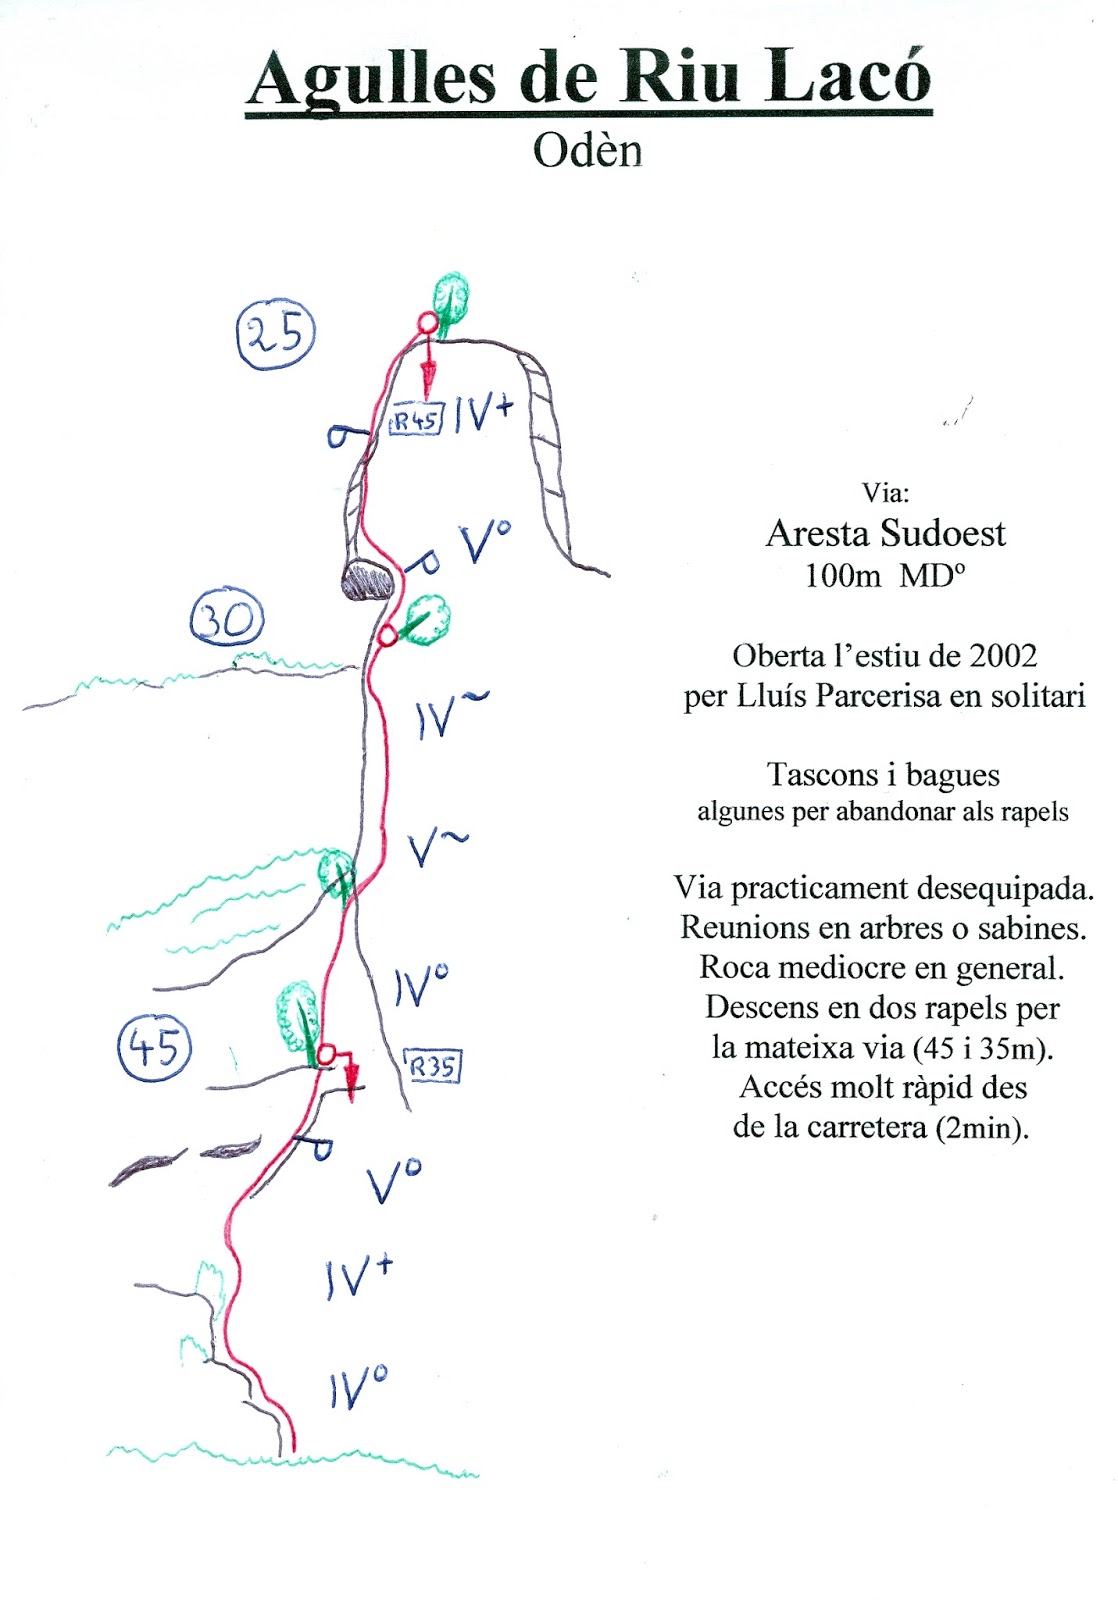 Agulles de Riu Lacó
Odèn
25
R45 IV+
V°
30
IV~
V~
IV°
45
R35
V°
IV+
IV°
Via:
Aresta Sudoest
100m MDº
Oberta l’estiu de 2002
per Lluís Parcerisa en solitari
Tascons i bagues
algunes per abandonar als rapels
Via practicament desequipada.
Reunions en arbres o sabines.
Roca mediocre en general.
Descens en dos rapels per
la mateixa via (45 i 35m).
Accés molt ràpid des
de la carretera (2min).